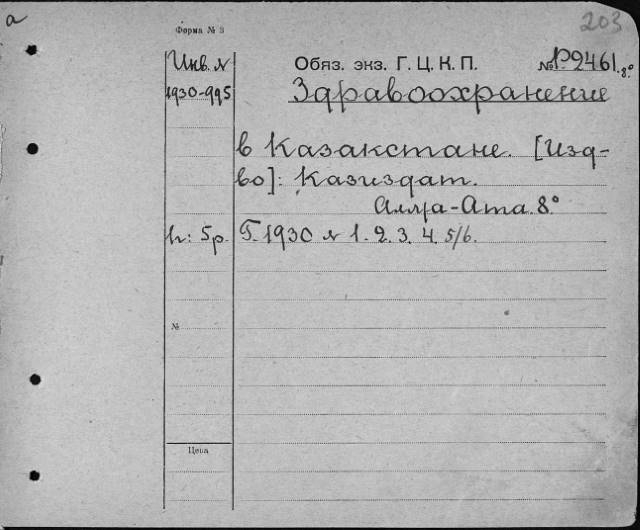 а
203
Форма № 3
Инв. №
Обяз. экз. Г. Ц. К. П. № P-2461. 8°
1930-995
Здравоохранение
в Казакстане. [Изд-
во]: Казиздат.
Алма-Ата. 8°
ц: 5р. Г. 1930 № 1. 2. 3. 4. 5/6.
№
Цена